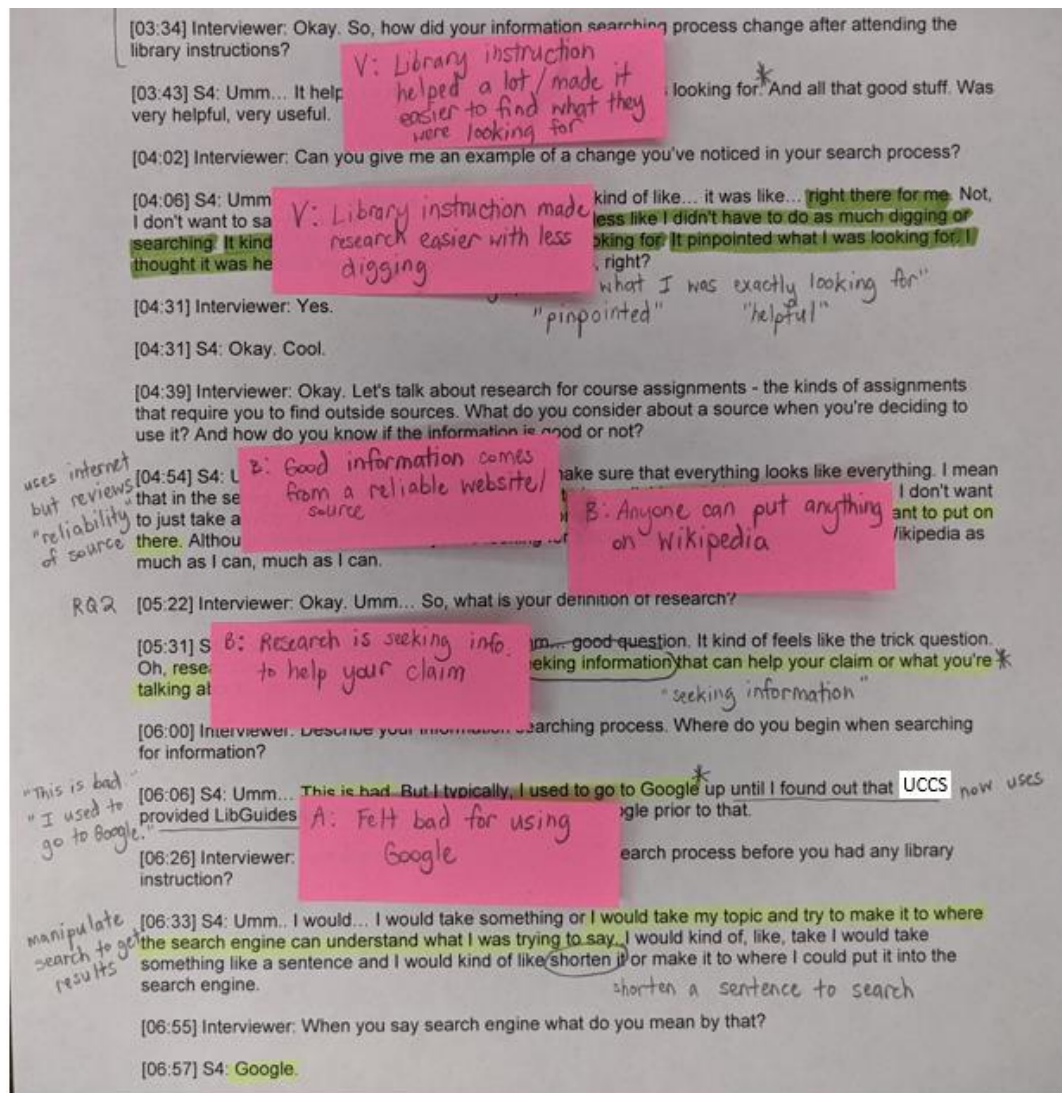 [03:34] Interviewer: Okay. So, how did your information searching process change after attending the
library instructions?
V: Library instruction
helped a lot/made it
easier to find what they
were looking for
[03:43] S4: Umm... It help looking for.* And all that good stuff. Was
very helpful, very useful.
[04:02] Interviewer: Can you give me an example of a change you've noticed in your search process?
[04:06] S4: Umm kind of like... it was like... right there for me. Not,
I don't want to sa less like I didn't have to do as much digging or
searching. It kind oking for. It pinpointed what I was looking for. I
thought it was he , right?
V: Library instruction made
research easier with less
digging
what I was exactly looking for"
"pinpointed" "helpful"
[04:31] Interviewer: Yes.
[04:31] S4: Okay. Cool.
[04:39] Interviewer: Okay. Let's talk about research for course assignments - the kinds of assignments
that require you to find outside sources. What do you consider about a source when you're deciding to
use it? And how do you know if the information is good or not?
uses internet
but reviews
"reliability
of source"
B: Good information comes
from a reliable website/
source
B: Anyone can put anything
on Wikipedia
[04:54] S4: ake sure that everything looks like everything. I mean
that in the se I don't want
to just take a ant to put on
there. Althou ikipedia as
much as I can, much as I can.
RQ2 [05:22] Interviewer: Okay. Umm... So, what is your definition of research?
B: Research is seeking info.
to help your claim
[05:31] S m... good question. It kind of feels like the trick question.
Oh, rese eking information that can help your claim or what you're *
talking ab
"seeking information"
[06:00] Interviewer: Describe your information searching process. Where do you begin when searching
for information?
"This is bad."
"I used to
go to Google."
[06:06] S4: Umm... This is bad. But I typically, I used to go to Google* up until I found out that UCCS now uses
provided LibGuides ogle prior to that.
A: Felt bad for using
Google
[06:26] Interviewer: earch process before you had any library
instruction?
manipulate
search to get
results
[06:33] S4: Umm.. I would... I would take something or I would take my topic and try to make it to where
the search engine can understand what I was trying to say. I would kind of, like, take I would take
something like a sentence and I would kind of like shorten it or make it to where I could put it into the
search engine.
shorten a sentence to search
[06:55] Interviewer: When you say search engine what do you mean by that?
[06:57] S4: Google.